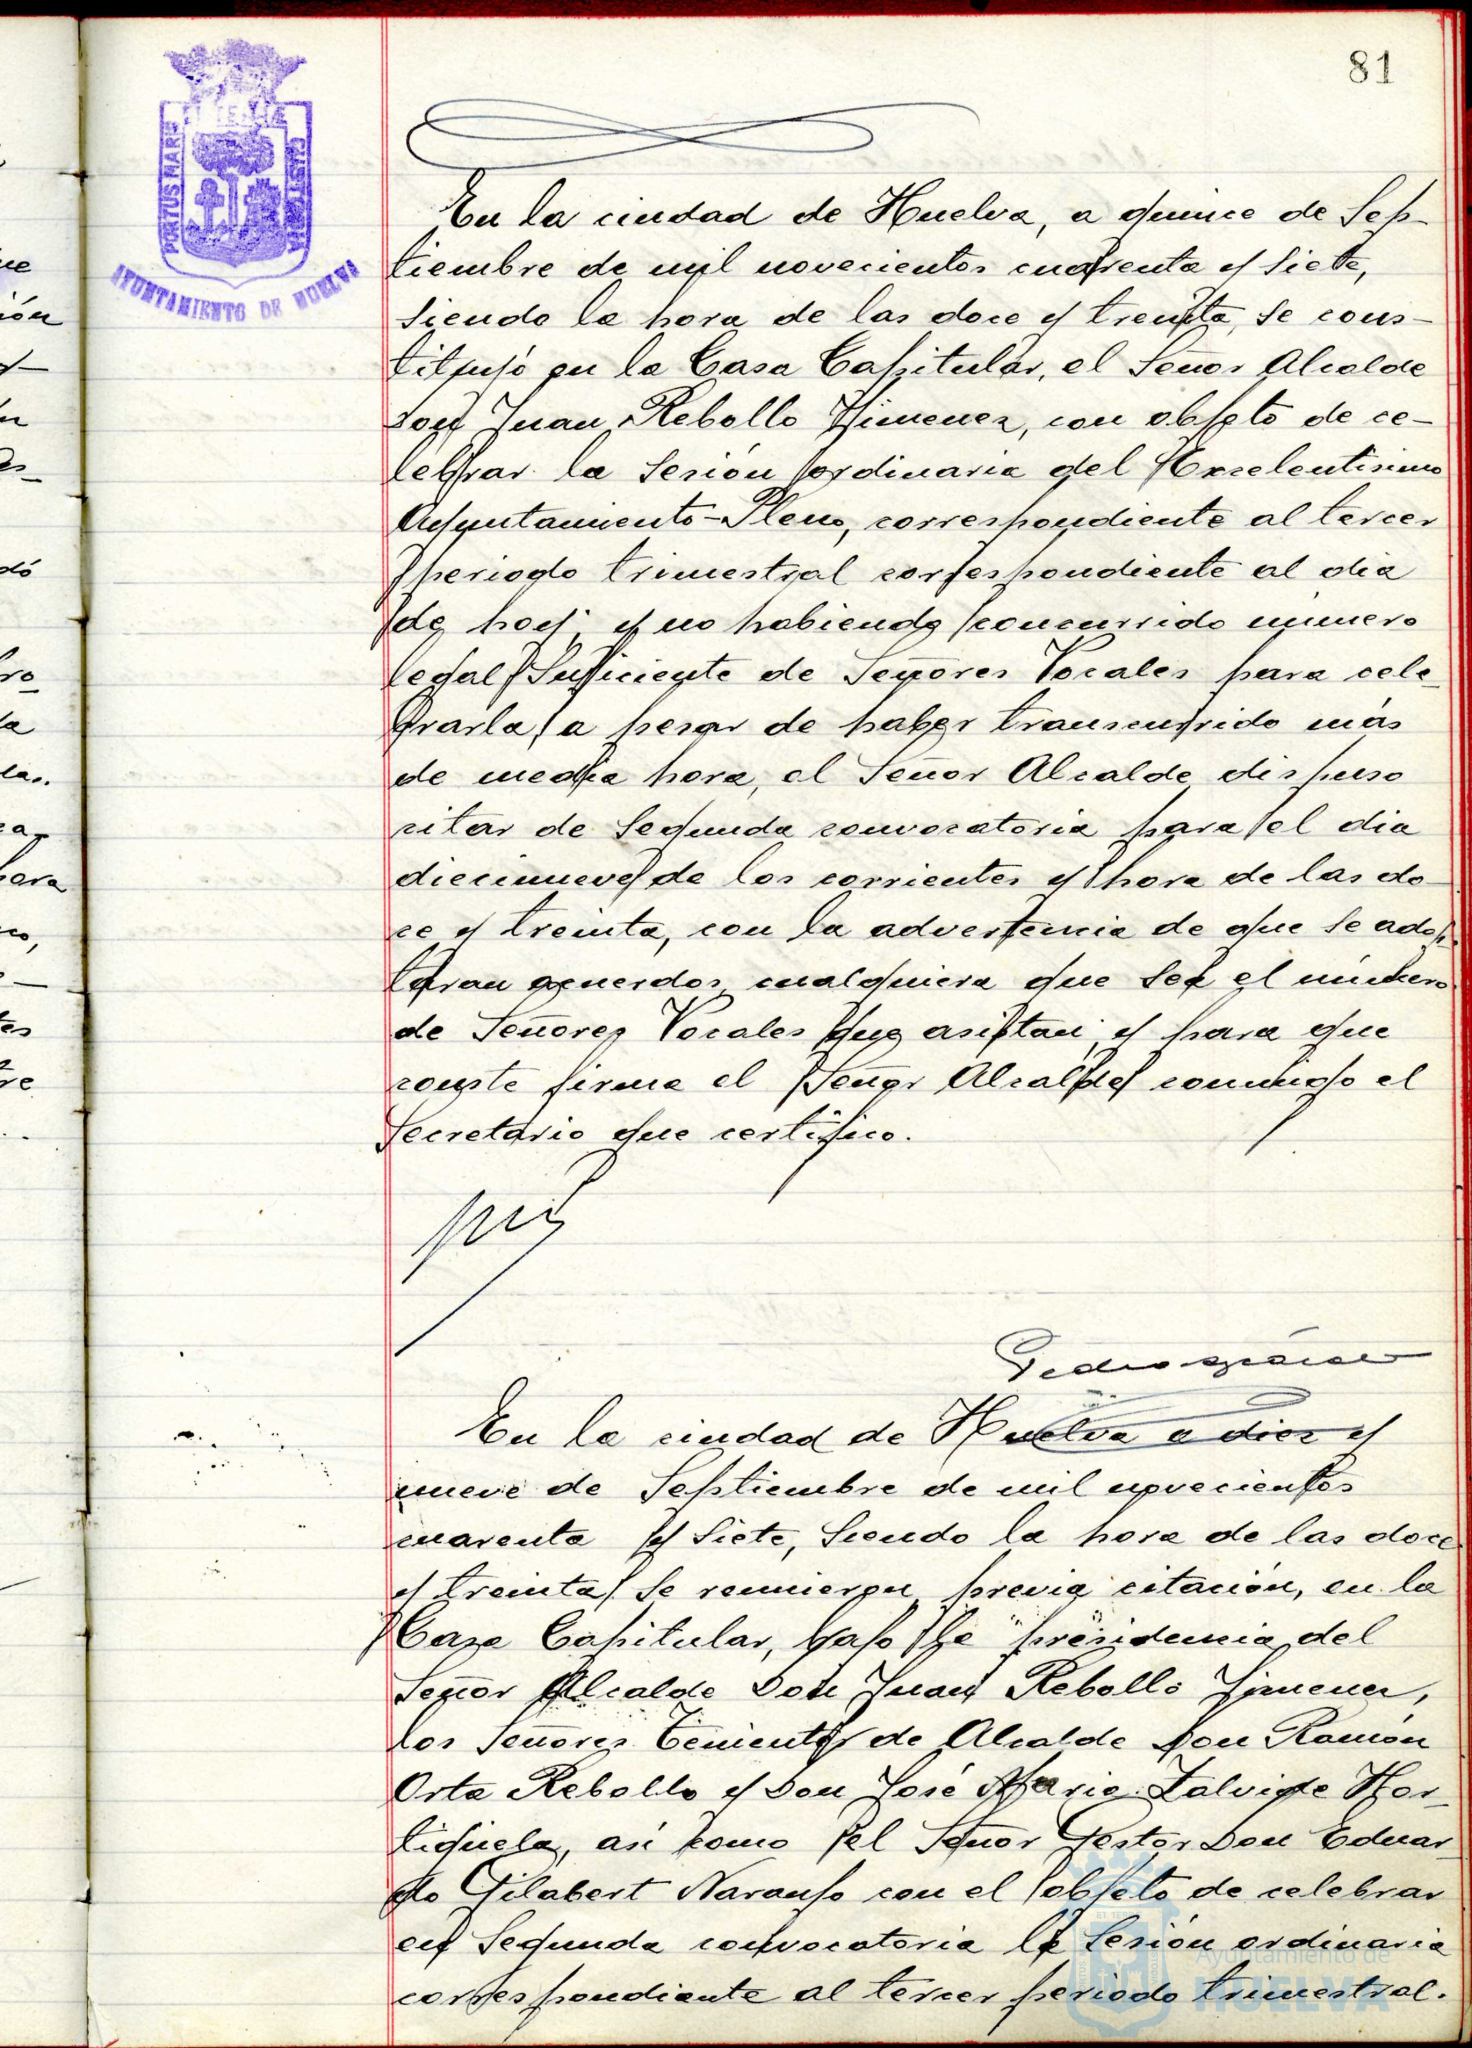 81
PORTUS MARIS
CUSTODIA
AYUNTAMIENTO DE HUELVA
En la ciudad de Huelva, a quince de Sep-
tiembre de mil novecientos cuarenta y siete,
siendo la hora de las doce y treinta, se cons-
tituyó en la Casa Capitular, el Señor Alcalde
Don Juan Rebollo Jimenez, con objeto de ce-
lebrar la sesión ordinaria del Excelentísimo
Ayuntamiento-Pleno, correspondiente al tercer
periodo trimestral correspondiente al dia
de hoy, y no habiendo concurrido número
legal suficiente de Señores Vocales para cele-
brarla, a pesar de haber transcurrido más
de media hora, el Señor Alcalde dispuso
citar de segunda convocatoria para el dia
diecinueve de los corrientes y hora de las do-
ce y treinta, con la advertencia de que se adop-
taran acuerdos cualquiera que sea el número
de Señores Vocales que asistan, y para que
conste firma el Señor Alcalde conmigo el
Secretario que certifico.
En la ciudad de Huelva a diez y
nueve de Septiembre de mil novecientos
cuarenta y siete, siendo la hora de las doce
y treinta, se reunieron previa citación, en la
Casa Capitular, bajo la presidencia del
Señor Alcalde Don Juan Rebollo Jimenez,
los Señores Tenientes de Alcalde Don Ramón
Orta Rebollo y Don José Maria Zalvide Hor-
tigüela, así como el Señor Gestor Don Eduar-
do Gilabert Naranjo con el objeto de celebrar
en segunda convocatoria la sesión ordinaria
correspondiente al tercer periodo trimestral.
Ayuntamiento de
HUELVA